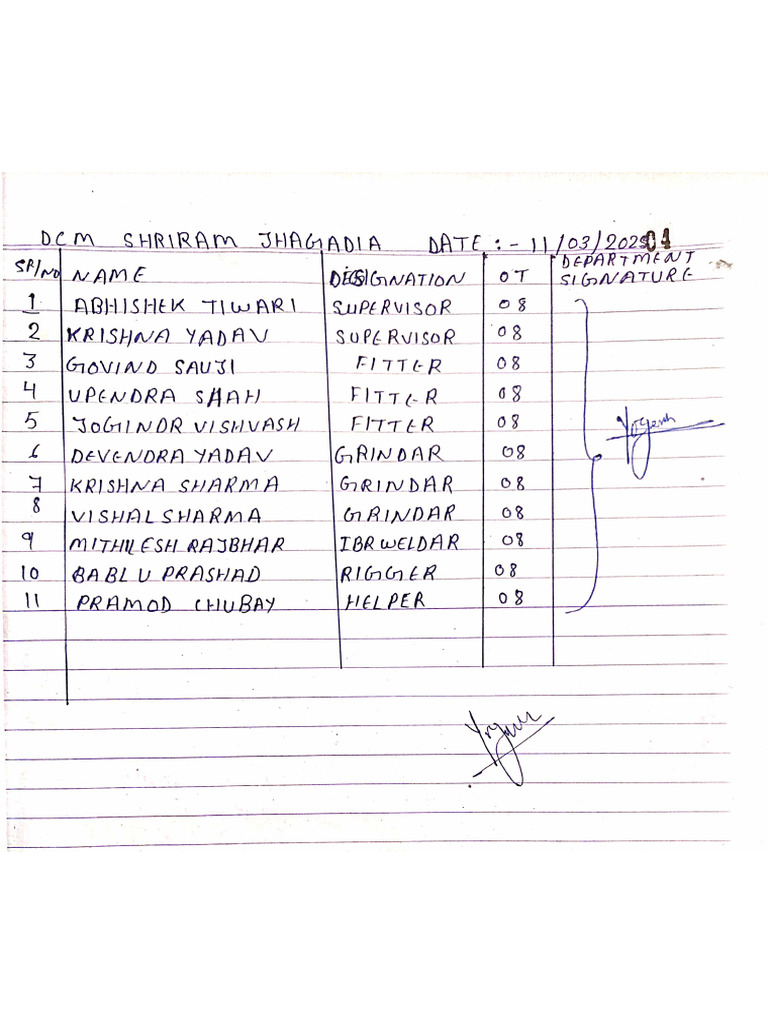 D.C M SHRIRAM JHAGADIA DATE : - 11/03/2025 04
SR/NO NAME DESIGNATION OT DEPARTMENT SIGNATURE
1 ABHISHEK TIWARI SUPERVISOR 08
2 KRISHNA YADAV SUPERVISOR 08
3 GOVIND SAUJI FITTER 08
4 UPENDRA SHAH FITTER 08
5 JOGINDR VISHVASH FITTER 08 Yogesh
6 DEVENDRA YADAV GRINDAR 08
7 KRISHNA SHARMA GRINDAR 08
8 VISHAL SHARMA GRINDAR 08
9 MITHILESH RAJBHAR IBR WELDAR 08
10 BABLU PRASHAD RIGGER 08
11 PRAMOD CHUBAY HELPER 08